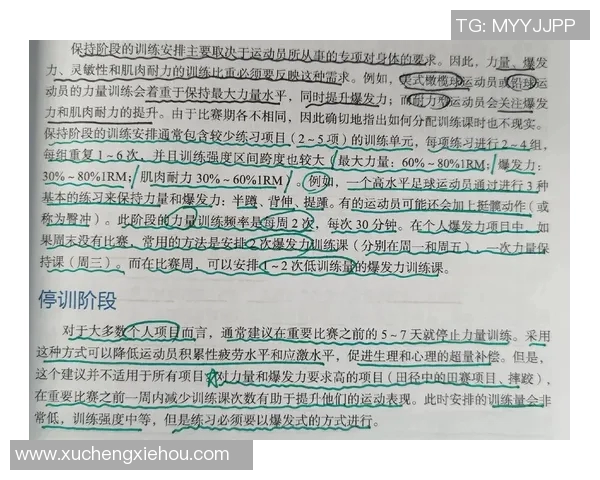 TG: MYYJJPP
保持阶段的训练安排主要取决于运动员所从事的专项对身体的要求。因此，力量、爆发
力、灵敏性和肌肉耐力的训练比重必须要反映这种需求。例如，美式橄榄球运动员或铅球运
动员的力量训练会着重于保持最大力量水平，同时提升爆发力；而耐力型运动员会关注爆发
力和肌肉耐力的提升。由于比赛期各不相同，因此确切地指出如何分配训练课时也不现实。
保持阶段的训练安排通常包含较少练习项目（2～5项）的训练单元，每项练习进行2～4组，
每组重复1～6次，并且训练强度区间跨度也较大（最大力量：60%～80%1RM；爆发力：
30%～80%1RM；肌肉耐力30%～60%1RM）。例如，一个高水平足球运动员通过进行3种
基本的练习来保持力量和爆发力：半蹲、背伸、提踵。有的运动员可能还会加上挺髋动作（或
称为臀冲）。此阶段的力量训练频率是每周2次，每次30分钟。在个人爆发力项目中，如
果周末没有比赛，常用的方法是安排2次爆发力训练课（分别在周一和周五），一次力量保
持课（周三）。而在比赛周，可以安排1～2次低训练量的爆发力训练课。
停训阶段
对于大多数个人项目而言，通常建议在重要比赛之前的5～7天就停止力量训练。采用
这种方式可以降低运动员积累性疲劳水平和应激水平，促进生理和心理的超量补偿。但是，
这个建议并不适用于所有项目，对力量和爆发力要求高的项目（田径中的田赛项目、摔跤），
在重要比赛之前一周内减少训练课次数有助于提升他们的运动表现。此时安排的训练量会非
常低，训练强度中等，但是练习必须要以爆发式的方式进行。
www.xuchengxiehou.com